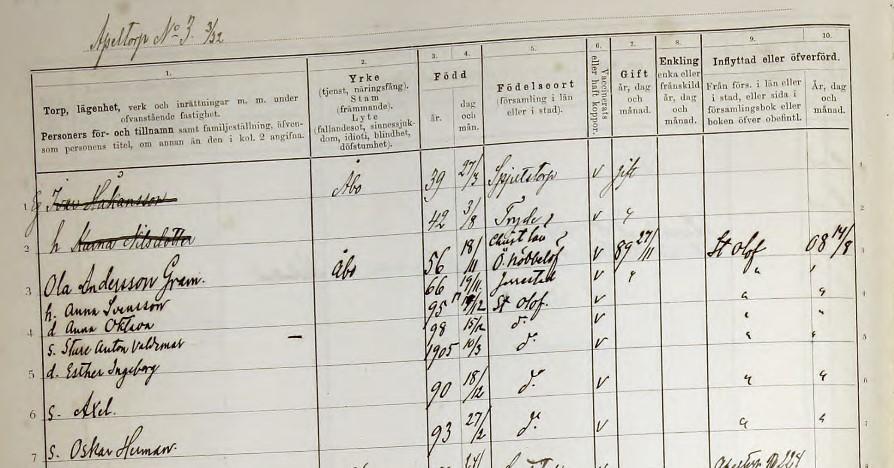 Apeltorp No 3. 3/32
1. 2. 3. 4. 5. 6. 7. 8. 9. 10.
Torp, lägenhet, verk och inrättningar m. m. under
ofvanstående fastighet.
Personers för- och tillnamn samt familjeställning, äfven-
som personens titel, om annan än den i kol. 2 angifna.
Yrke
(tjenst, näringsfång).
Stam
(främmande).
Lyte
(fallandesot, sinnessjuk-
dom, idioti, blindhet,
döfstumhet).
Född
år.
dag
och
mån.
Födelseort
(församling i län
eller i stad).
Vaccinerats
eller haft koppor.
Gift
år, dag
och
månad.
Enkling
enka eller
frånskild
år, dag
och
månad.
Inflyttad eller öfverförd.
Från förs. i län eller
i stad, eller sida i
församlingsbok eller
boken öfver obefintl.
År, dag
och
månad.
1 Håkansson Åbo 39 27/3 Spjutstorp v gift 1
2 h Karna Nilsdotter 42 3/8 Tryde v " 2
3 Ola Andersson Gram. Åbo 56 18/11 Ö. Nöbbelöf v 89 27/11 St Olof 08 14/8
h. Anna Svensson 66 19/11 Jerrestad v " " "
4 d Anna Oktavia 95 St Olof. v " " 4
s. Sture Anton Valdemar 98 15/2 d:o v " "
5 d. Esther Ingeborg 1905 10/3 d:o v " " 5
6 s. Axel. 90 18/12 d:o v " " 6
7 s. Oskar Herman. 93 27/2 d:o v " "
Apeltorp